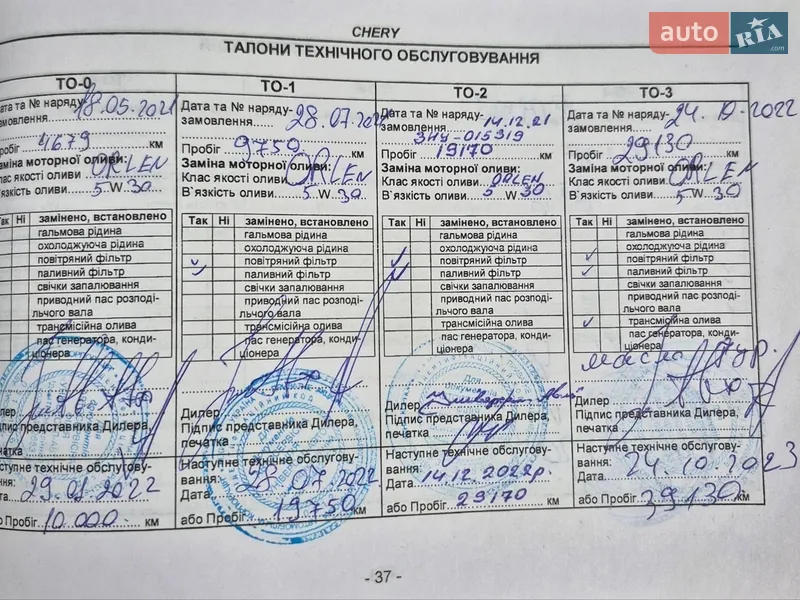 auto RIA .com
CHERY
ТАЛОНИ ТЕХНІЧНОГО ОБСЛУГОВУВАННЯ
ТО-0
Дата та № наряду-
замовлення 18.05.2021
Пробіг 4679 км
Заміна моторної оливи:
клас якості оливи ORLEN
В`язкість оливи 5 W 30
Так Ні замінено, встановлено
гальмова рідина
охолоджуюча рідина
повітряний фільтр
паливний фільтр
свічки запалювання
приводний пас розподі-
льчого вала
трансмісійна олива
пас генератора, конди-
ціонера
Дилер
Підпис представника Дилера,
печатка
Наступне технічне обслугову-
вання:
Дата 29.01.2022
або Пробіг 10.000 км
ТО-1
Дата та № наряду-
замовлення 28.07.2022
Пробіг 9750 км
Заміна моторної оливи:
Клас якості оливи ORLEN
В`язкість оливи 5 W 30
Так Ні замінено, встановлено
гальмова рідина
охолоджуюча рідина
повітряний фільтр
паливний фільтр
свічки запалювання
приводний пас розподі-
льчого вала
трансмісійна олива
пас генератора, конди-
ціонера
Дилер
Підпис представника Дилера,
печатка
Наступне технічне обслугову-
вання:
Дата 28 07 2022
або Пробіг 19750 км
ТО-2
Дата та № наряду-
замовлення 14.12.21
ЗНУ-015319
Пробіг 19170 км
Заміна моторної оливи:
Клас якості оливи ORLEN
В`язкість оливи 5 W 30
Так Ні замінено, встановлено
гальмова рідина
охолоджуюча рідина
повітряний фільтр
паливний фільтр
свічки запалювання
приводний пас розподі-
льчого вала
трансмісійна олива
пас генератора, конди-
ціонера
Дилер
Підпис представника Дилера,
печатка
Наступне технічне обслугову-
вання:
Дата 14.12.2022р
або Пробіг 29170 км
ТО-3
Дата та № наряду-
замовлення 24.10.2022
Пробіг 29130 км
Заміна моторної оливи:
Клас якості оливи ORLEN
В`язкість оливи 5 W 30
Так Ні замінено, встановлено
гальмова рідина
охолоджуюча рідина
повітряний фільтр
паливний фільтр
свічки запалювання
приводний пас розподі-
льчого вала
трансмісійна олива
пас генератора, конди-
ціонера
Дилер
Підпис представника Дилера,
печатка
Наступне технічне обслугову-
вання:
Дата 24.10.2023
або Пробіг 39130 км
- 37 -